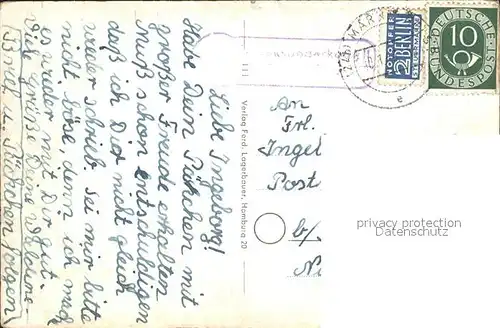 Liebe Ingeborg!
Habe Dein Päckchen mit
großer Freude erhalten
Muß schon entschuldigen
daß ich Dir nicht gleich
wieder schrieb. Sei mir bitte
nicht böse, denn ich mach
es wieder mit Dir gut.
Viele Grüße Deine
Brief u. Päckchen folgen
111
Verlag Ferd. Lagerbauer, Hamburg 20
An
Frl.
Ingel
Post
b/
Ni
NOTOPFER
2 BERLIN
STEUERMARKE
DEUTSCHE
10
BUNDESPOST
(24b) MARN
e
privacy protection
Datenschutz